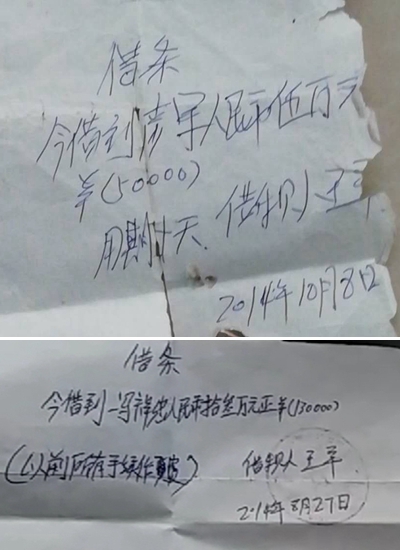 借条
今借到彦军人民币伍万元
羊(50000)
用期 十天. 借枳人 王军
2014年10月8日
借条
今借到冯祥纪人民币拾叁万元正羊(130000)
(以前所有手续作废) 借枳人 王军
2014年8月27日